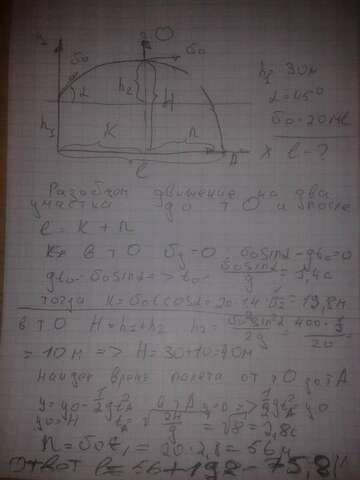 O
υo
υo
h₂
H
α
h₁
K
n
x
l
h₁ 30м
α = 45°
υo = 20м/с
l - ?
Разобьем движение на два
участка до т О и после
l = K + n
в т О υy = 0 υo sinα - gto = 0
gto = υo sinα => to = υo sinα/g = 1,4с
тогда K = υo t cosα = 20·1,4·√2/2 = 19,8м
в т О H = h₁ + h₂ h₂ = υo² sin²α/2g = 400·1/2/20
= 10м => H = 30 + 10 = 40м
найдем время полета от т О до т А
y = yo - 1/2 gt² в т А y = 0 => 1/2 gt² = yo
yo = H t = √2H/g = √8 = 2,8с
n = υo t₁ = 20·2,8 = 56м
Ответ l = 56 + 19,8 = 75,8м